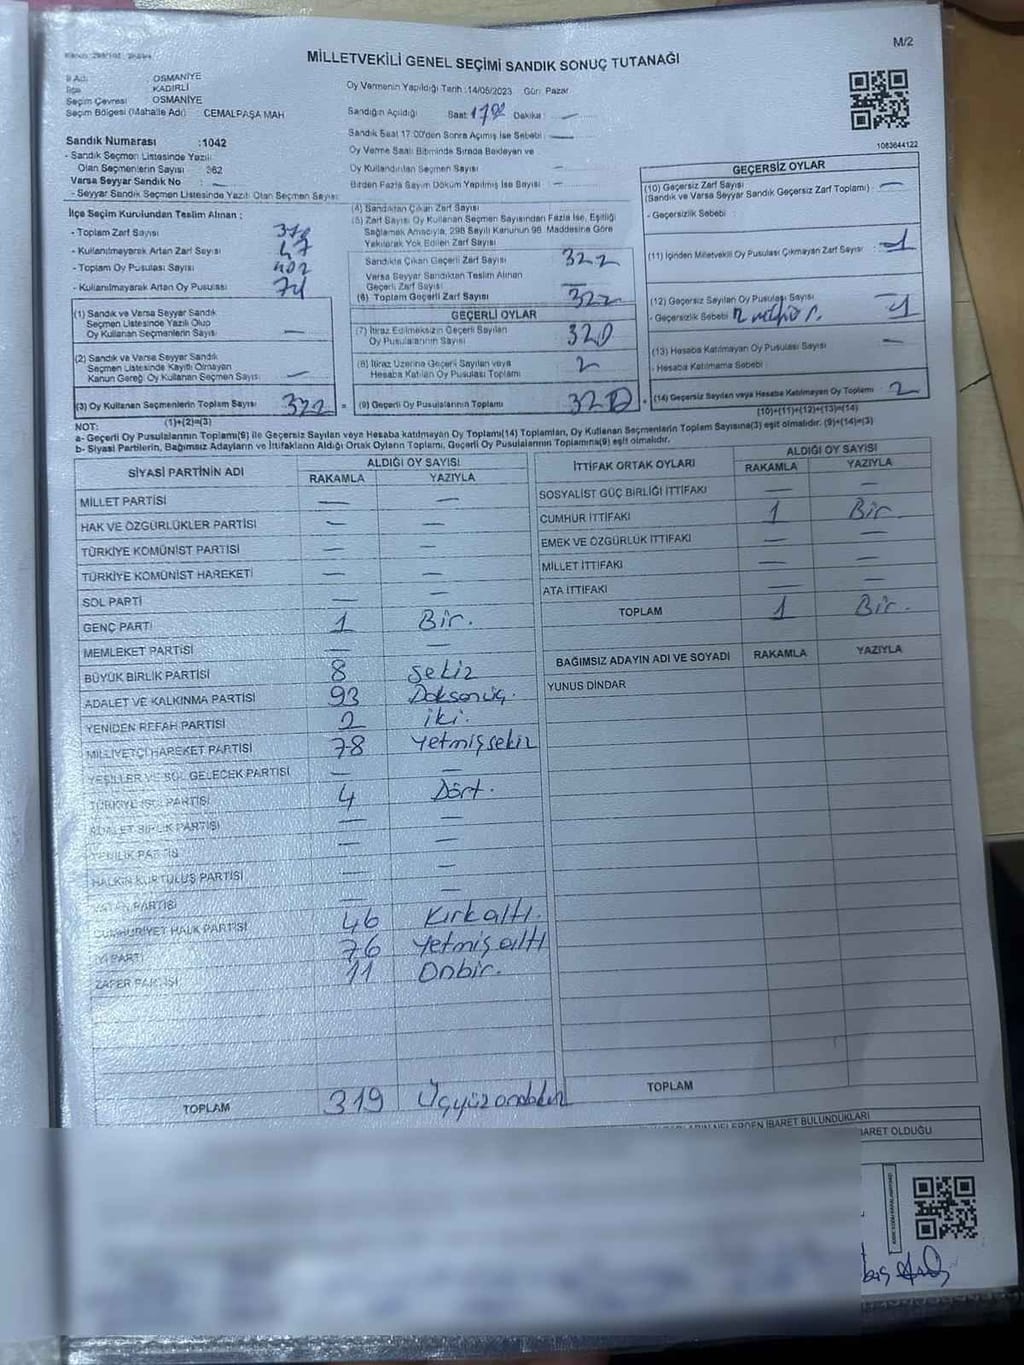 M/2
MİLLETVEKİLİ GENEL SEÇİMİ SANDIK SONUÇ TUTANAĞI
İl Adı : OSMANİYE
İlçe : KADİRLİ
Seçim Çevresi : OSMANİYE
Seçim Bölgesi (Mahalle Adı) : CEMALPAŞA MAH
Oy Vermenin Yapıldığı Tarih :14/05/2023 Gün: Pazar
Sandığın Açıldığı Saat: 17:00 Dakika: —
Sandık Saat 17:00'den Sonra Açılmış İse Sebebi : —
Oy Verme Saati Bitiminde Sırada Bekleyen ve
Oy Kullandırılan Seçmen Sayısı —
Birden Fazla Sayım Döküm Yapılmış İse Sayısı : —
1083644122
Sandık Numarası :1042
- Sandık Seçmen Listesinde Yazılı
Olan Seçmenlerin Sayısı : 362
Varsa Seyyar Sandık No : —
- Seyyar Sandık Seçmen Listesinde Yazılı Olan Seçmen Sayısı:
İlçe Seçim Kurulundan Teslim Alınan ;
- Toplam Zarf Sayısı
- Kullanılmayarak Artan Zarf Sayısı : 47
- Toplam Oy Pusulası Sayısı : 402
- Kullanılmayarak Artan Oy Pusulası
(1) Sandık ve Varsa Seyyar Sandık
Seçmen Listesinde Yazılı Olup
Oy Kullanan Seçmenlerin Sayısı —
(2) Sandık ve Varsa Seyyar Sandık
Seçmen Listesinde Kayıtlı Olmayan
Kanun Gereği Oy Kullanan Seçmen Sayısı: —
(3) Oy Kullanan Seçmenlerin Toplam Sayısı 322
(1)+(2)=(3)
(4) Sandıktan Çıkan Zarf Sayısı
(5) Zarf Sayısı Oy Kullanan Seçmen Sayısından Fazla İse, Eşitliği
Sağlamak Amacıyla, 298 Sayılı Kanunun 98. Maddesine Göre
Yakılarak Yok Edilen Zarf Sayısı
Sandıkta Çıkan Geçerli Zarf Sayısı 322
Varsa Seyyar Sandıktan Teslim Alınan
Geçerli Zarf Sayısı —
(6) Toplam Geçerli Zarf Sayısı 322
GEÇERLİ OYLAR
(7) İtiraz Edilmeksizin Geçerli Sayılan
Oy Pusulalarının Sayısı 320
(8) İtiraz Üzerine Geçerli Sayılan veya
Hesaba Katılan Oy Pusulası Toplamı
= (9) Geçerli Oy Pusulalarının Toplamı 320
GEÇERSİZ OYLAR
(10) Geçersiz Zarf Sayısı
(Sandık ve Varsa Seyyar Sandık Geçersiz Zarf Toplamı) : —
- Geçersizlik Sebebi :
(11) İçinden Milletvekili Oy Pusulası Çıkmayan Zarf Sayısı : 1
(12) Geçersiz Sayılan Oy Pusulası Sayısı : 1
- Geçersizlik Sebebi : 2 mühür.
(13) Hesaba Katılmayan Oy Pusulası Sayısı : —
- Hesaba Katılmama Sebebi :
+ (14) Geçersiz Sayılan veya Hesaba Katılmayan Oy Toplamı 2
(10)+(11)+(12)+(13)=(14)
NOT:
a- Geçerli Oy Pusulalarının Toplamı(9) ile Geçersiz Sayılan veya Hesaba katılmayan Oy Toplamı(14) Toplamları, Oy Kullanan Seçmenlerin Toplam Sayısına(3) eşit olmalıdır. (9)+(14)=(3)
b- Siyasi Partilerin, Bağımsız Adayların ve İttifakların Aldığı Ortak Oyların Toplamı, Geçerli Oy Pusulalarının Toplamına(9) eşit olmalıdır.
SİYASİ PARTİNİN ADI ALDIĞI OY SAYISI
RAKAMLA YAZIYLA
MİLLET PARTİSİ — —
HAK VE ÖZGÜRLÜKLER PARTİSİ — —
TÜRKİYE KOMÜNİST PARTİSİ — —
TÜRKİYE KOMÜNİST HAREKETİ — —
SOL PARTİ — —
GENÇ PARTİ 1 Bir.
MEMLEKET PARTİSİ — —
BÜYÜK BİRLİK PARTİSİ 8 Sekiz
ADALET VE KALKINMA PARTİSİ 93 Doksanüç.
YENİDEN REFAH PARTİSİ 2 iki.
MİLLİYETÇİ HAREKET PARTİSİ 78 Yetmişsekiz
YEŞİLLER VE SOL GELECEK PARTİSİ — —
TÜRKİYE İŞÇİ PARTİSİ 4 Dört.
ADALET BİRLİK PARTİSİ — —
YENİLİK PARTİSİ — —
HALKIN KURTULUŞ PARTİSİ — —
VATAN PARTİSİ — —
CUMHURİYET HALK PARTİSİ 46 Kırkaltı.
İYİ PARTİ 76 Yetmişaltı
ZAFER PARTİSİ 11 Onbir.
TOPLAM 319 Üçyüzondokuz
İTTİFAK ORTAK OYLARI ALDIĞI OY SAYISI
RAKAMLA YAZIYLA
SOSYALİST GÜÇ BİRLİĞİ İTTİFAKI — —
CUMHUR İTTİFAKI 1 Bir.
EMEK VE ÖZGÜRLÜK İTTİFAKI — —
MİLLET İTTİFAKI — —
ATA İTTİFAKI — —
TOPLAM 1 Bir.
BAĞIMSIZ ADAYIN ADI VE SOYADI RAKAMLA YAZIYLA
YUNUS DİNDAR
TOPLAM
NELERDEN İBARET BULUNDUKLARI
İBARET OLDUĞU